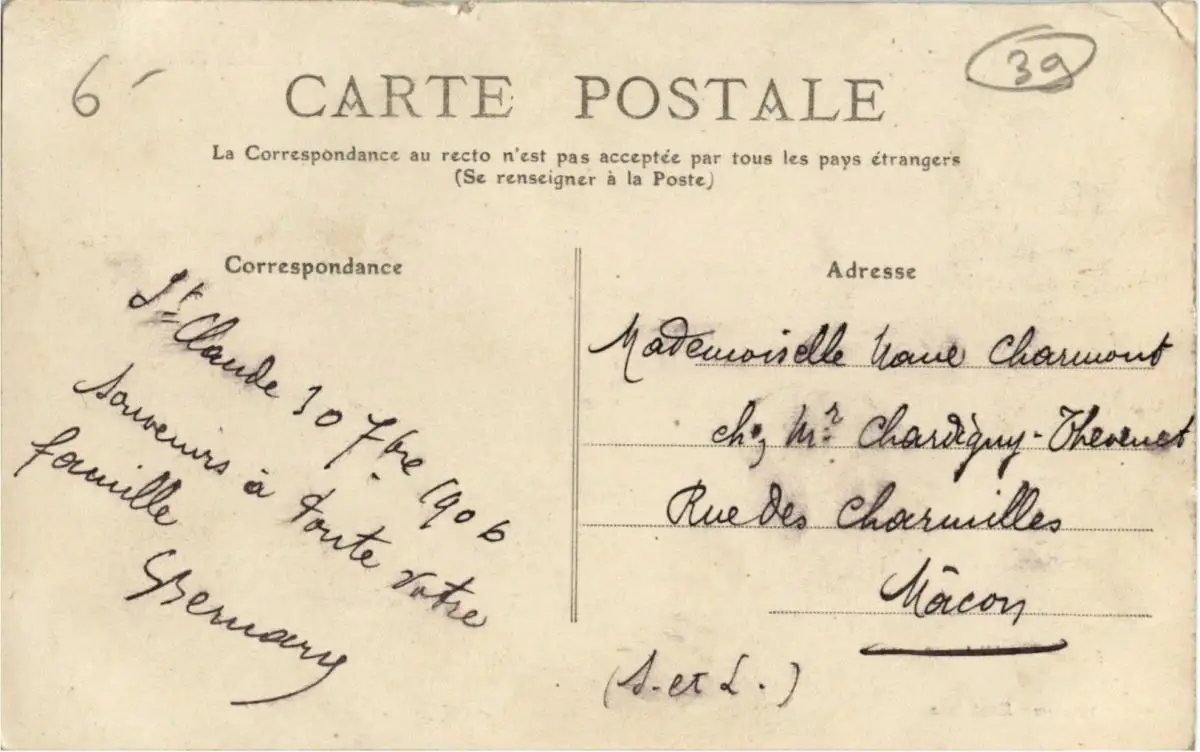 6
39
CARTE POSTALE
La Correspondance au recto n'est pas acceptée par tous les pays étrangers
(Se renseigner à la Poste)
Correspondance
St Claude 30 7bre 1906
Souvenirs à toute votre
famille
Adresse
Mademoiselle Charmont
chez Mr Chardigny-Thevenet
Rue des Charmilles
Mâcon
(S. et L.)